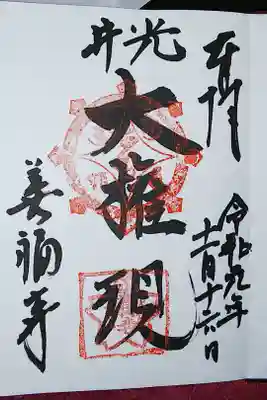 奉拝
令和元年
十一月十六日
光井
大権現
善福寺